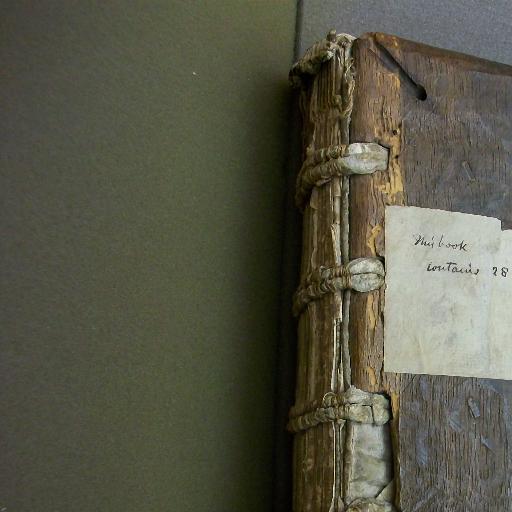 This book
contains 28